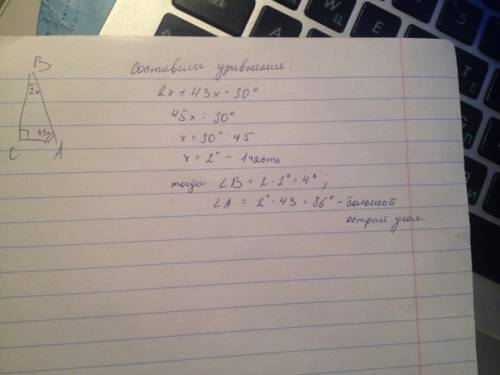 B
2x
43x
C
A
Составили уравнение.
2x + 43x = 90°
45x = 90°
x = 90° : 45
x = 2° – 1 часть
тогда ∠B = 2 · 2° = 4° ;
∠A = 2° · 43 = 86° – больший
острый угол